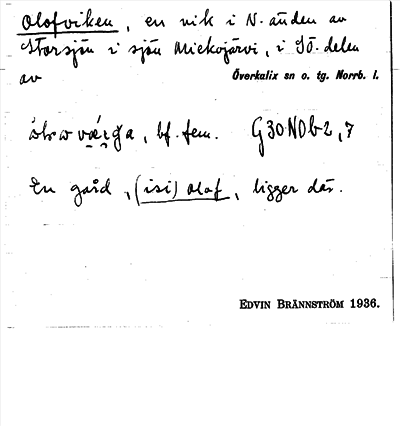 Olofviken, en vik i N. änden av
Storsjön i sjön Miekojärvi, i Sö. delen
av Överkalix sn o. tg. Norrb. l.
bf. fem. G30NOb2,7
En gård, (isi) Olof, ligger där.
EDVIN BRÄNNSTRÖM 1936.